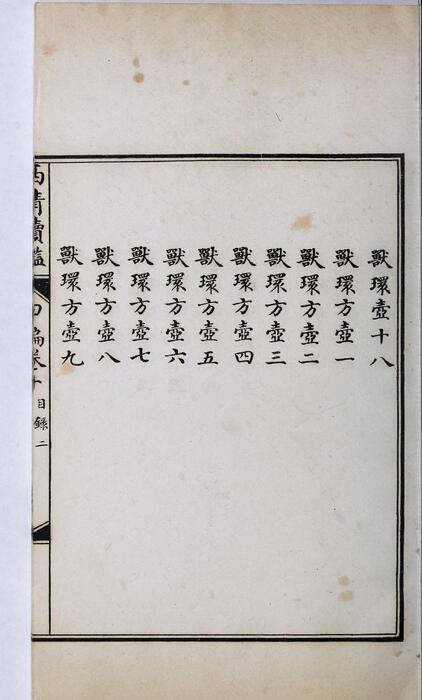 獸環壺十八
獸環方壺一
獸環方壺二
獸環方壺三
獸環方壺四
獸環方壺五
獸環方壺六
獸環方壺七
獸環方壺八
獸環方壺九
西清續鑑
編卷
目錄
二